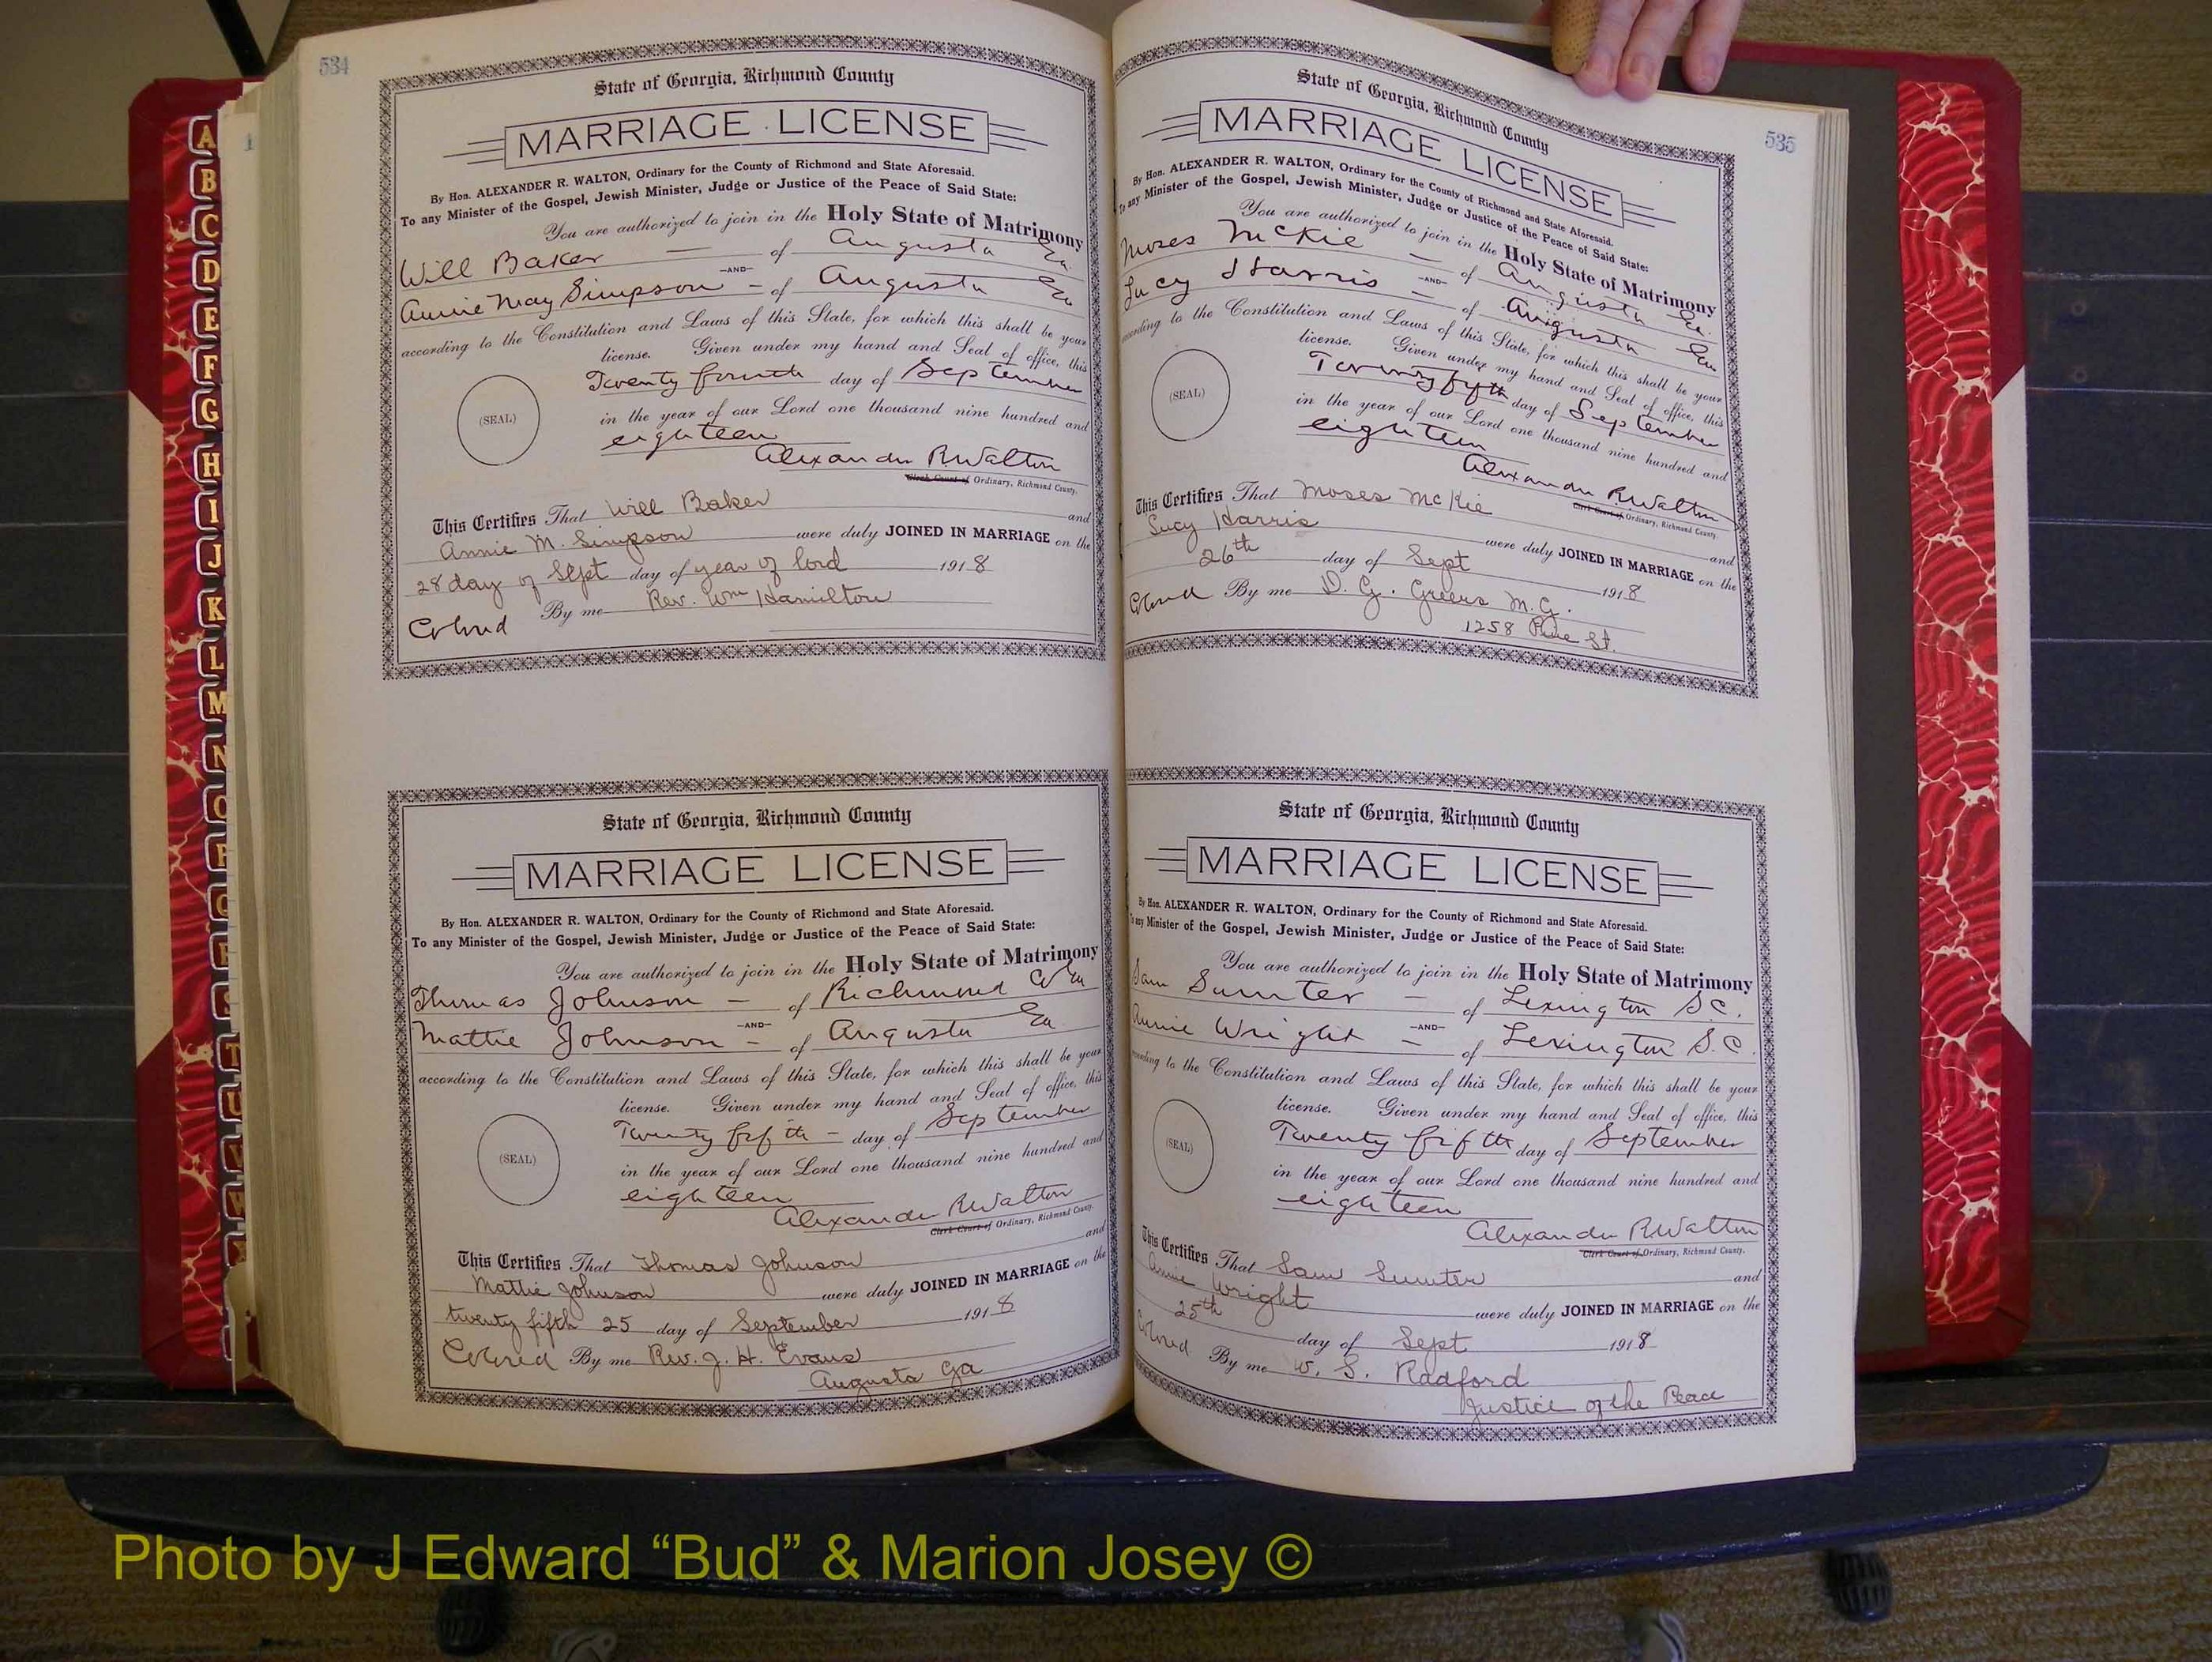 534
State of Georgia, Richmond County
MARRIAGE LICENSE
By Hon. ALEXANDER R. WALTON, Ordinary for the County of Richmond and State Aforesaid.
To any Minister of the Gospel, Jewish Minister, Judge or Justice of the Peace of Said State:
You are authorized to join in the Holy State of Matrimony
Will Baker of Augusta Ga.
-AND-
Annie May Simpson - of Augusta Ga
according to the Constitution and Laws of this State, for which this shall be your
license. Given under my hand and Seal of office, this
Twenty fourth day of September
(SEAL)
in the year of our Lord one thousand nine hundred and
eighteen
Alexander R. Walton
Clerk Court of Ordinary, Richmond County.
This Certifies That Will Baker and
Annie M. Simpson were duly JOINED IN MARRIAGE on the
28 day of Sept day of year of lord 1918
By me Rev. Wm Hamilton
Colored
State of Georgia, Richmond County
MARRIAGE LICENSE
By Hon. ALEXANDER R. WALTON, Ordinary for the County of Richmond and State Aforesaid.
To any Minister of the Gospel, Jewish Minister, Judge or Justice of the Peace of Said State:
You are authorized to join in the Holy State of Matrimony
Thomas Johnson - of Richmond Co Ga
-AND-
Mattie Johnson - of Augusta Ga
according to the Constitution and Laws of this State, for which this shall be your
license. Given under my hand and Seal of office, this
Twenty fifth - day of September
(SEAL)
in the year of our Lord one thousand nine hundred and
eighteen
Alexander R Walton
Clerk Court of Ordinary, Richmond County.
This Certifies That Thomas Johnson and
Mattie Johnson were duly JOINED IN MARRIAGE on the
twenty fifth 25 day of September 1918
Colored By me Rev. J. H. Evans
Augusta Ga
535
State of Georgia, Richmond County
MARRIAGE LICENSE
By Hon. ALEXANDER R. WALTON, Ordinary for the County of Richmond and State Aforesaid.
To any Minister of the Gospel, Jewish Minister, Judge or Justice of the Peace of Said State:
You are authorized to join in the Holy State of Matrimony
Moses McKie - of Augusta Ga.
-AND-
Lucy Harris - of Augusta Ga
according to the Constitution and Laws of this State, for which this shall be your
license. Given under my hand and Seal of office, this
Twenty fifth day of September
(SEAL)
in the year of our Lord one thousand nine hundred and
eighteen
Alexander R. Walton
Clerk Court of Ordinary, Richmond County.
This Certifies That Moses McKie and
Lucy Harris were duly JOINED IN MARRIAGE on the
26th day of Sept 1918
Colored By me D. G. Greens M.G.
1258 Pine St.
State of Georgia, Richmond County
MARRIAGE LICENSE
By Hon. ALEXANDER R. WALTON, Ordinary for the County of Richmond and State Aforesaid.
To any Minister of the Gospel, Jewish Minister, Judge or Justice of the Peace of Said State:
You are authorized to join in the Holy State of Matrimony
Sam Sumter - of Lexington S.C.
-AND-
Annie Wright - of Lexington S.C.
according to the Constitution and Laws of this State, for which this shall be your
license. Given under my hand and Seal of office, this
Twenty fifth day of September
(SEAL)
in the year of our Lord one thousand nine hundred and
eighteen
Alexander R. Walton
Clerk Court of Ordinary, Richmond County.
This Certifies That Sam Sumter and
Annie Wright were duly JOINED IN MARRIAGE on the
25th day of Sept 1918
Colored By me W. S. Radford
Justice of the Peace
A
B
C
D
E
F
G
H
I
J
K
L
M
N
O
P
Q
R
S
T
U
V
W
X
Photo by J Edward “Bud” & Marion Josey ©